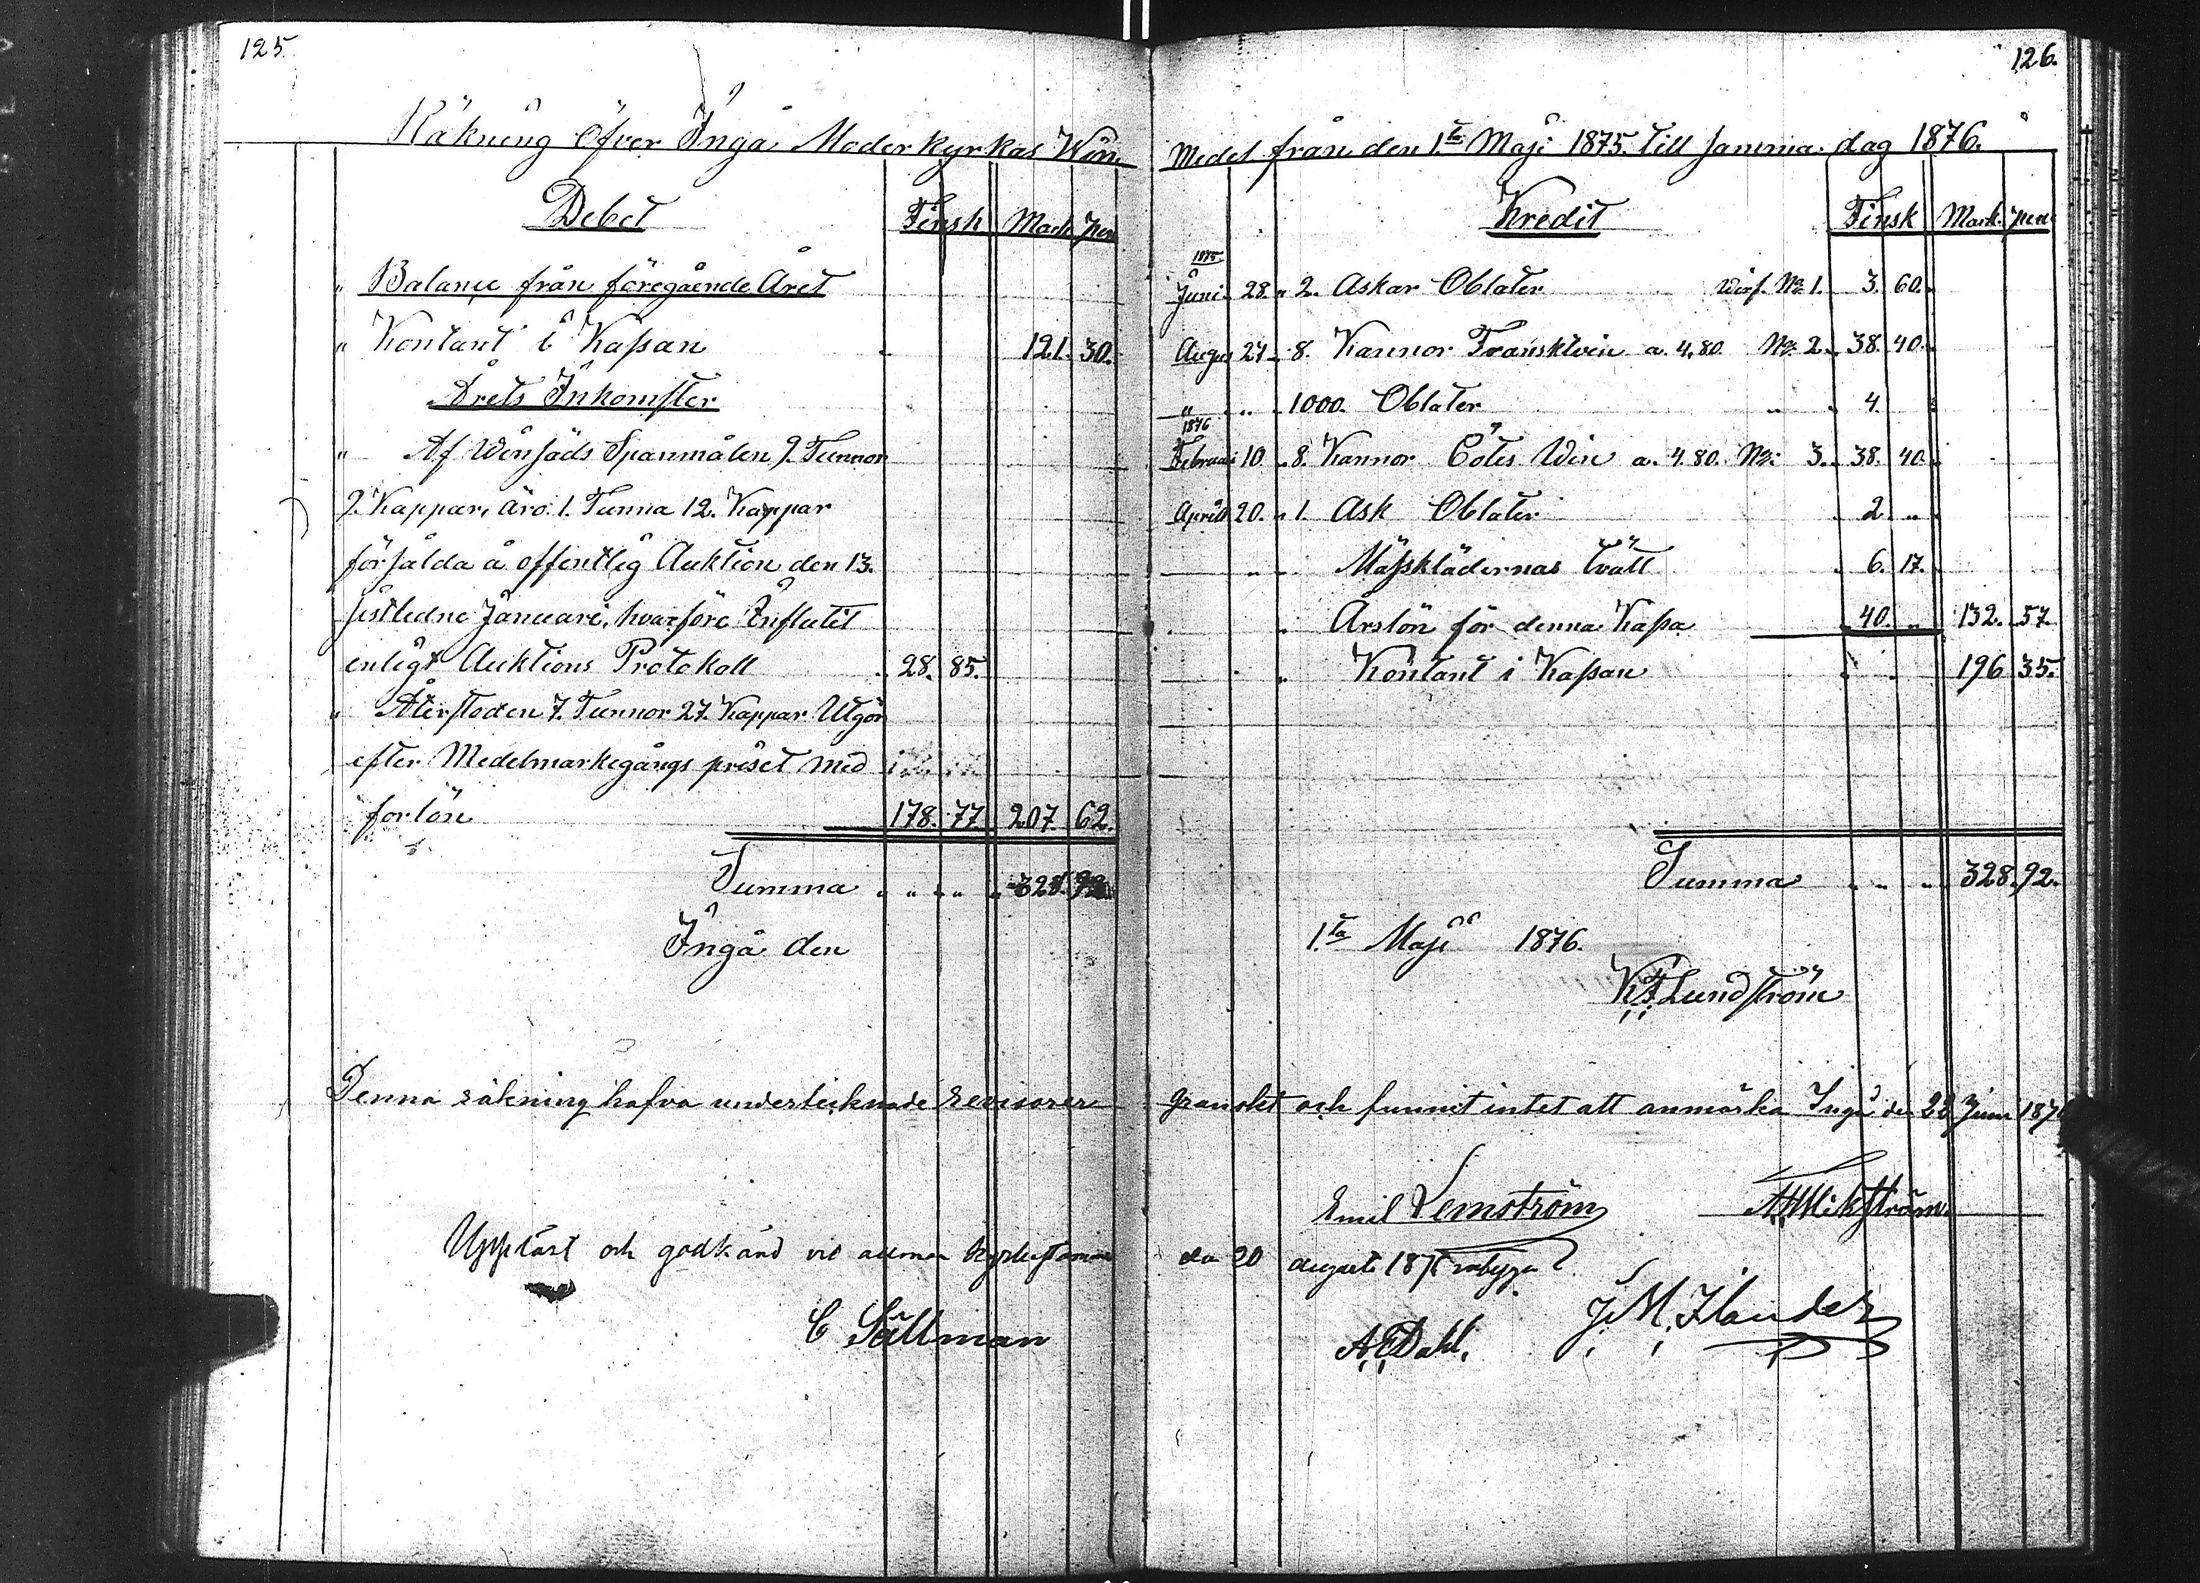 125.
Räkning Öfver Ingå Moderkyrkas Win
Debet Finsk Mark pen
" Balance från föregående Året
" Kontant i Kassan 121. 30.
Årets Inkomster
" Af Winsäds Spanmålen 9. Tunnor
9. Kappar, äro. 1. Tunna 12. Kappar
försålda å offentlig Auktion den 13.
sistledne Januari, hvarföre Influtit
enligt Auktions Protokoll 28. 85.
" Återstoden 7. Tunnor 27. Kappar Utgör
efter Medelmarkegångs priset med
forlön 178. 77. 207. 62.
Summa " " " " 328. 92.
Ingå den
Denna räkning hafva undertecknade revisorer
Uppläst och godkänd vid allmän kyrkostämma
C Sällman
126.
Medel från den 1.ta Maji 1875. till samma dag 1876.
Kredit Finsk Mark. pen
1875
Juni 28. " 2. Askar Oblater Verf. No 1. 3. 60.
Augus 24 " 8. Kannor Fransktvin a. 4,80. No 2. 38. 40.
" " 1000. Oblater " 4. "
1876
Februari 10 " 8. Kannor Cotes Win a. 4.80. No: 3. 38. 40.
April 20. " 1. Ask Oblater 2. "
" " Mässklädernas tvätt 6. 17.
" Årslön för denna Kassa 40. " 132. 57.
" " Kontant i Kassan " " 196 35.
Summa " " " 328. 92.
1.ta Maji 1876.
K F Lundström
granskt och funnit intet att anmärka Ingå den 22 Juni 1876
Emil Lemström A. Wikström
den 20 augusti 1876
A E Dahl. J. M. Ilander